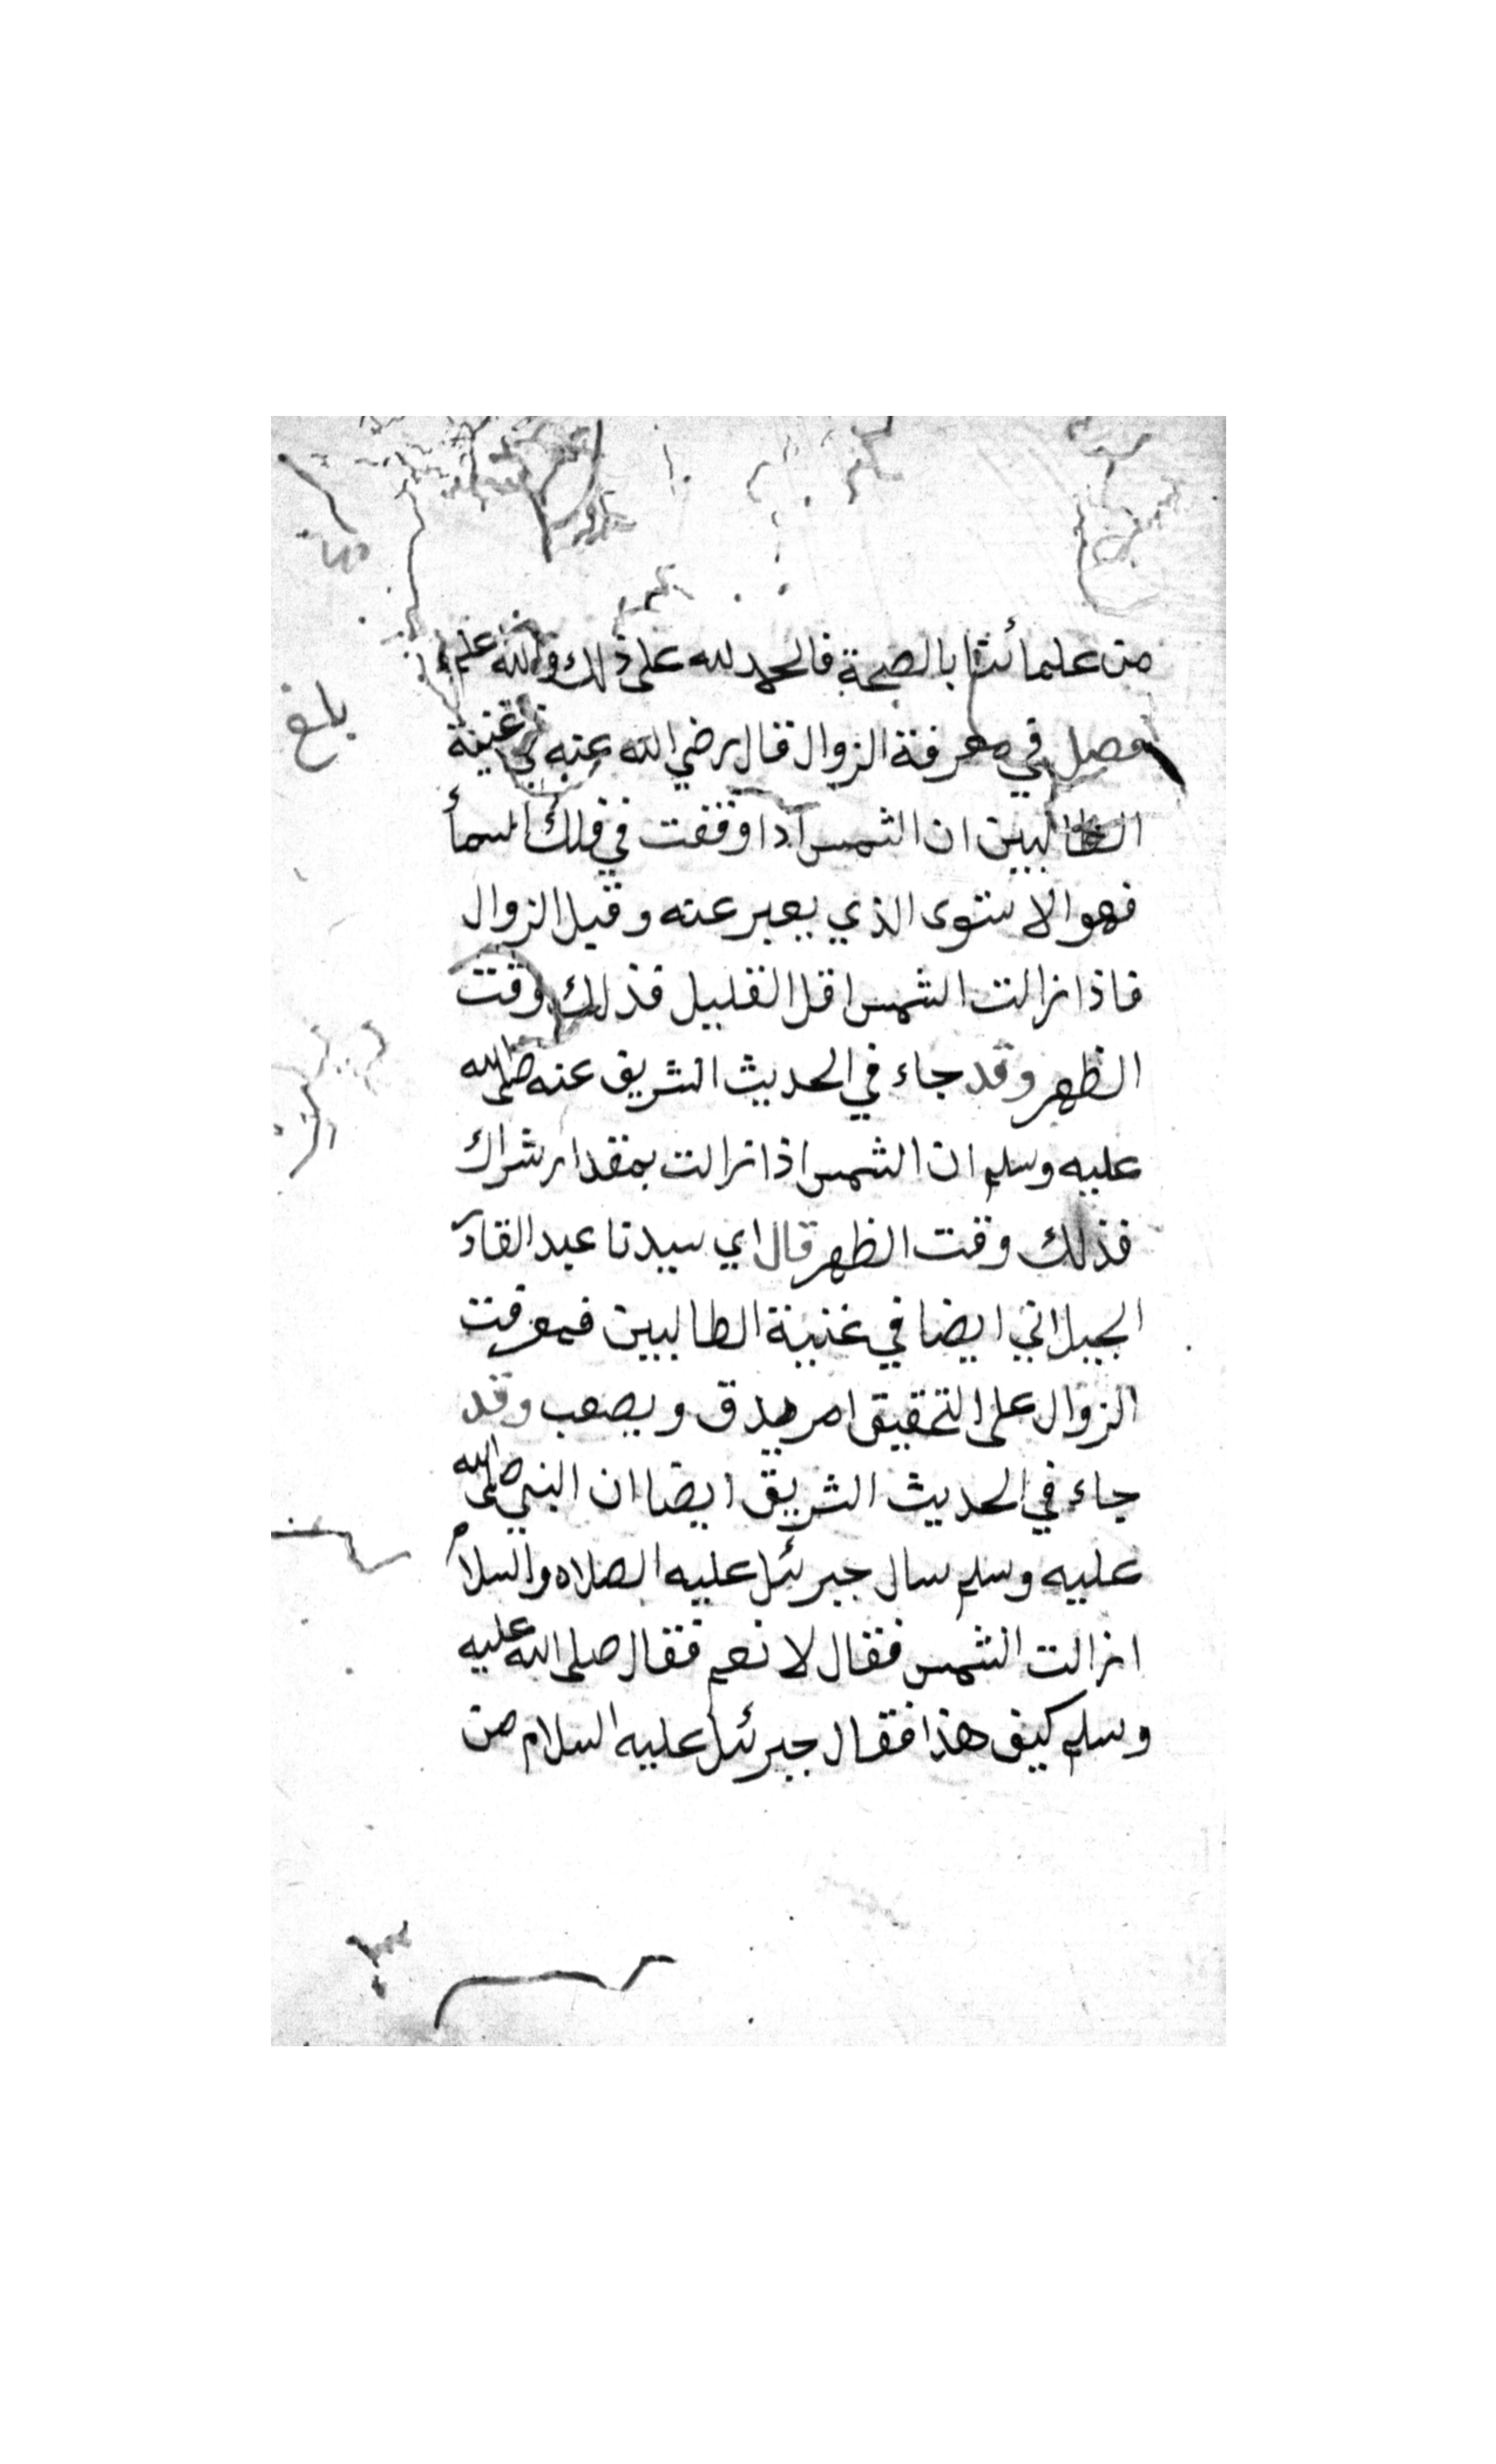 من علمائنا بالصحة فالحمد لله على ذلك والله اعلم
بلغ
فصل في معرفة الزوال قال رضي الله عنه في غنية
الطالبين ان الشمس اذا وقفت في فلك السمأ
فهو الاستوى الذي يعبر عنه وقيل الزوال
فاذا زالت الشمس اقل القليل فذلك وقت
الظهر وقد جاء في الحديث الشريف عنه صلى الله
عليه وسلم ان الشمس اذا زالت بمقدار شراك
فذلك وقت الظهر قال اي سيدنا عبد القادر
الجيلاني ايضا في غنية الطالبين فمعرفت
الزوال على التحقيق امر يدق ويصعب وقد
جاء في الحديث الشريف ايضا ان النبي صلى الله
عليه وسلم سال جبرئل عليه الصلاه والسلام
ازالت الشمس فقال لا نعم فقال صلى الله عليه
وسلم كيف هذا فقال جبرئل عليه السلام من